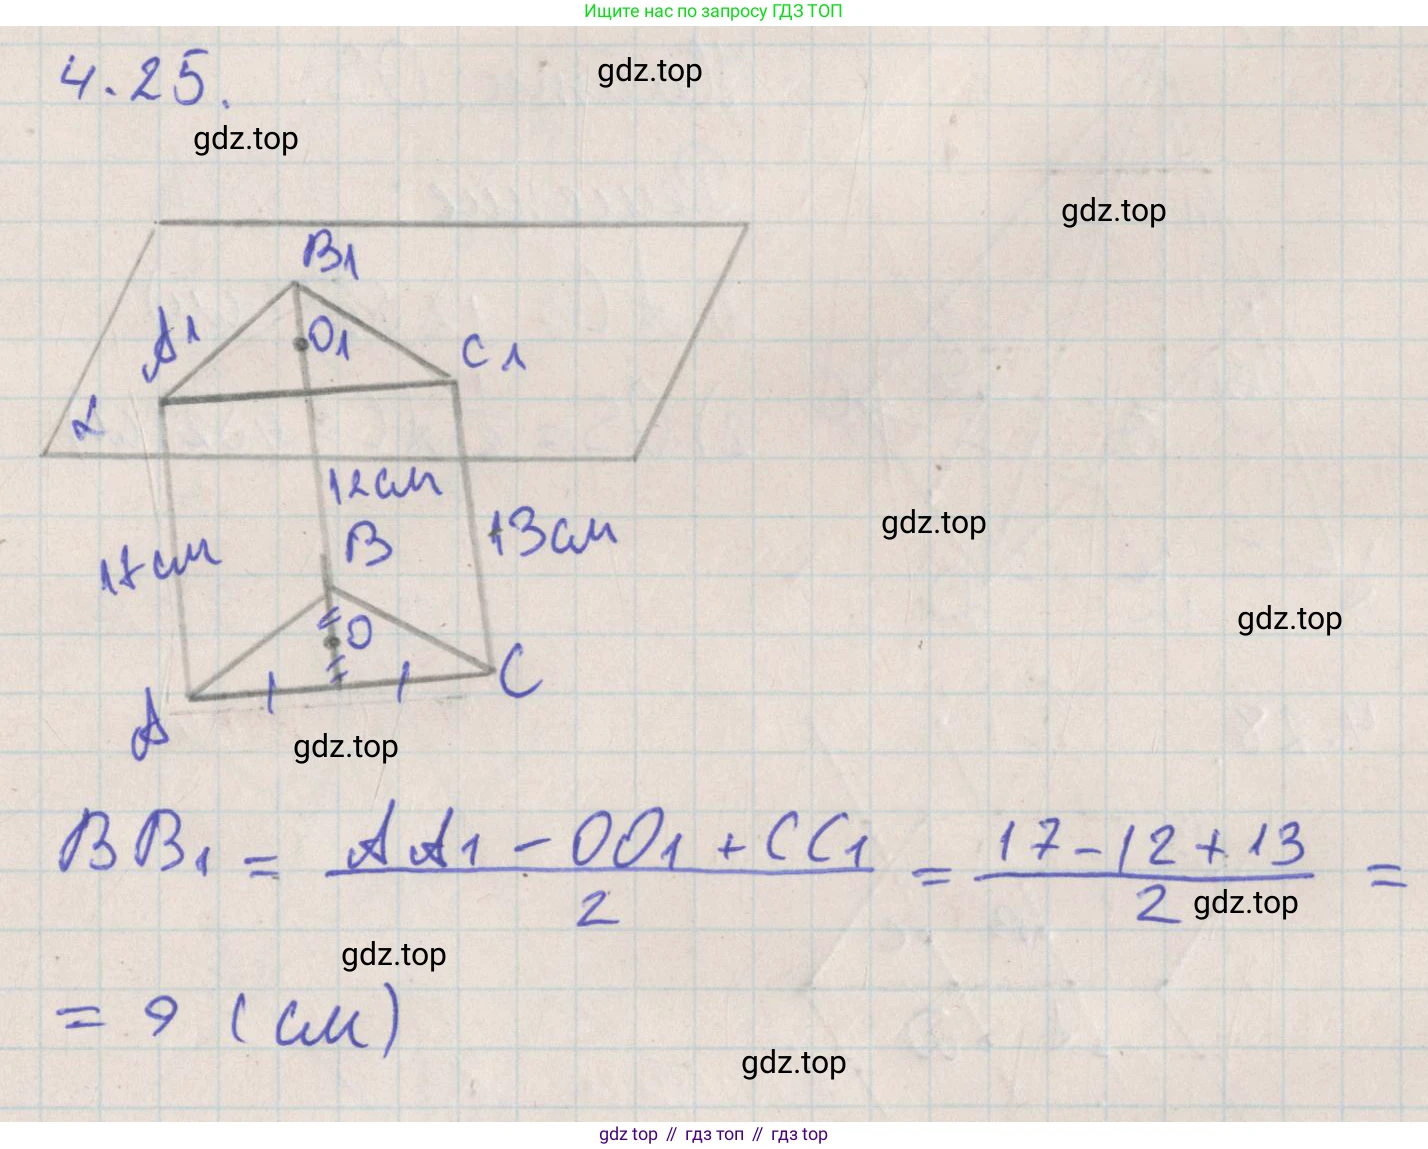 Ищите нас по запросу ГДЗ ТОП
4.25.
gdz.top
gdz.top
gdz.top
B1
A1
O1
C1
α
12 см
B
17 см
13 см
gdz.top
gdz.top
O
C
A
gdz.top
BB1 = (AA1 - OO1 + CC1) / 2 = (17 - 12 + 13) / 2 =
gdz.top
gdz.top
= 9 (см)
gdz.top
gdz top // гдз топ // gdz.top